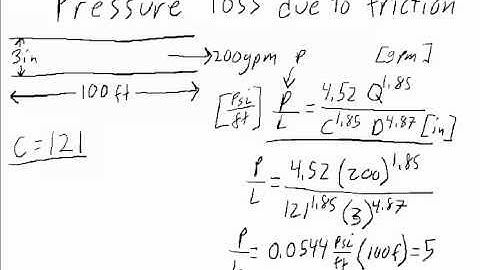 Pressure loss due to friction
3in
200gpm
100 ft
C=121
P [gpm]
[psi/ft] P/L = 4.52 Q^1.85 / C^1.85 D^4.87 [in]
P/L = 4.52 (200)^1.85 / 121^1.85 (3)^4.87
P/L = 0.0544 psi/ft (100f) = 5